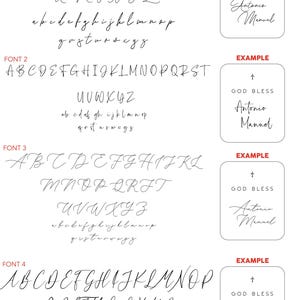 Antonio
Manuel
a b c d e f g h i j k l m n o p
q r s t u v w x y z
FONT 2
EXAMPLE
A B C D E F G H I J K L M N O P Q R S T
U V W X Y Z
a b c d e f g h i j k l m n o p
q r s t u v w x y z
GOD BLESS
Antonio
Manuel
FONT 3
EXAMPLE
A B C D E F G H I J K L
M N O P Q R S T
U V W X Y Z
a b c d e f g h i j k l m n o p
q r s t u v w x y z
GOD BLESS
Antonio
Manuel
FONT 4
EXAMPLE
A B C D E F G H I J K L M N O P
GOD BLESS